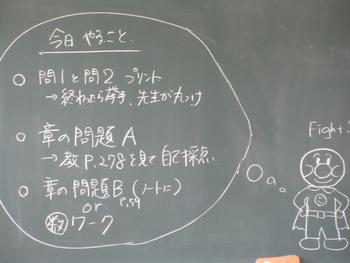 今日 やること
○ 問1と問2 プリント
→ 終わったら挙手、先生が丸つけ
○ 章の問題A
→ 教P.278を見て自己採点
○ 章の問題B (ノートに)
or P.59
数 ワーク
Fight!
C